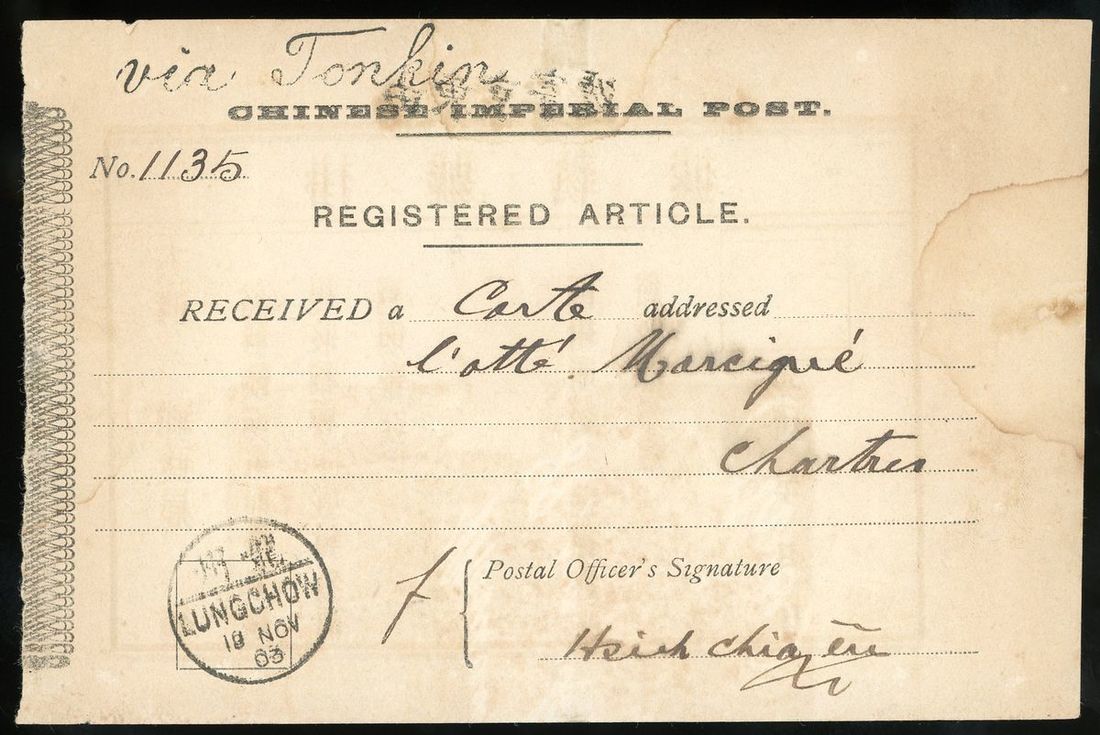 via Tonkin
CHINESE IMPERIAL POST.
No. 1135
REGISTERED ARTICLE.
RECEIVED a Carte addressed
l'abbé Marcigné
Chartres
LUNGCHOW
18 NOV
03
Postal Officer's Signature
Hsieh Chia